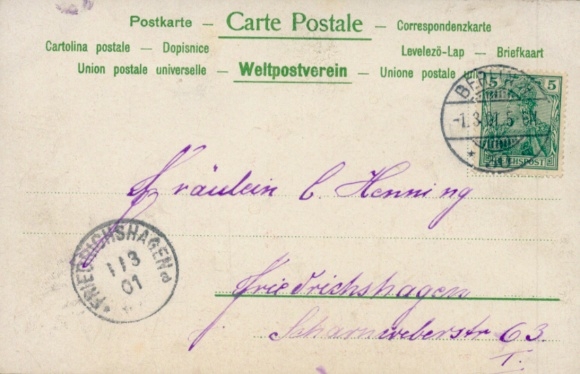 Postkarte — Carte Postale — Correspondenzkarte
Cartolina postale — Dopisnice Levelező-Lap — Briefkaart
Union postale universelle — Weltpostverein — Unione postale
5 5
REICHSPOST
BERLIN
-1.3.01.5-6N.
Fräulein C. Henning
FRIEDRICHSHAGEN
1 1 3
01
Friedrichshagen
Scharnweberstr 63.
I.